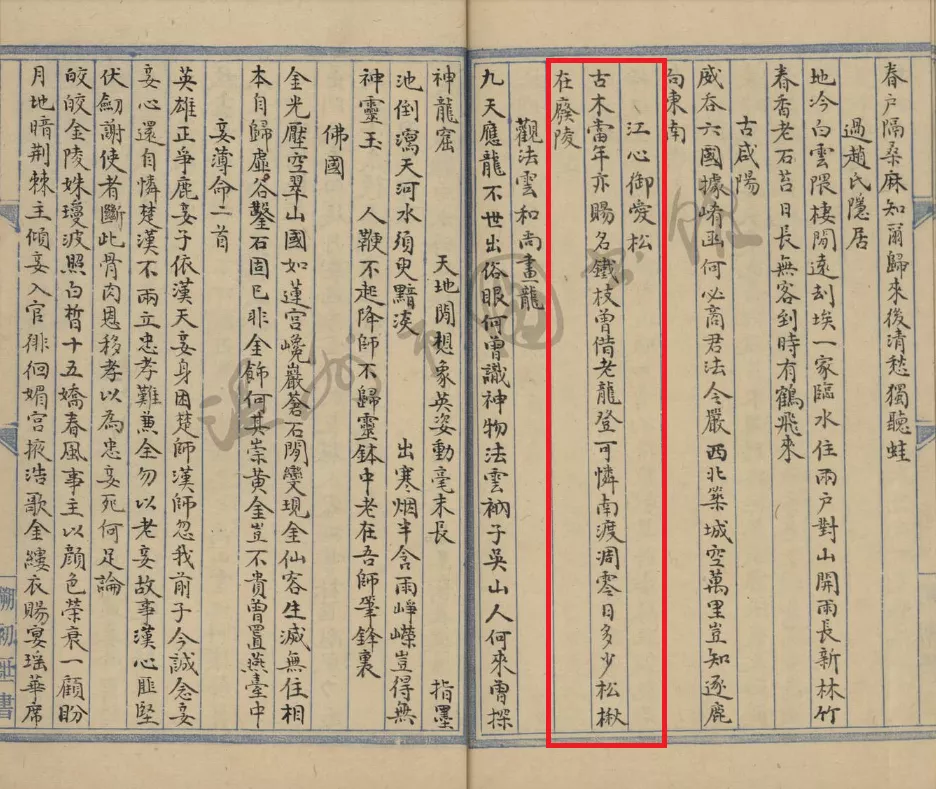 春戶隔桑麻知爾歸來後清愁獨聽蛙
過趙氏隱居
地今白雲隈棲閒遠刧埃一家臨水住兩戶對山開雨長新林竹
春香老石苔日長無客到時有鶴飛來
古咸陽
威吞六國據崤函何必商君法令嚴西北築城空萬里豈知逐鹿
向東南
江心御愛松
古木當年亦賜名鐵枝曾借老龍登可憐南渡凋零日多少松楸
在廢陵
觀法雲和尚畫龍
九天應龍不世出俗眼何曾識神物法雲衲子吳山人何來曾探
神龍窟 天地閒想象英姿動毫末長 指墨
池倒瀉天河水須臾黯淡 出寒烟半含雨崢嶸豈得無
神靈玉 人鞭不起降師不歸靈鉢中老在吾師筆鋒裏
佛國
金光壓空翠山國如蓮宮巉巖蒼石閒變現金仙容生滅無住相
本自歸虛谷鑿石固已非金飾何其崇黃金豈不貴曾置燕臺中
妾薄命二首
英雄正爭鹿妾子依漢天妾身困楚師漢師忽我前子今誠念妾
妾心還自憐楚漢不兩立忠孝難兼全勿以老妾故事漢心匪堅
伏劒謝使者斷此骨肉恩移孝以為忠妾死何足論
皎皎金陵姝瓊波照白皙十五嬌春風事主以顏色榮衰一顧盼
月地暗荊棘主傾妾入官徘徊媚宮掖浩歌金縷衣賜宴瑤華席